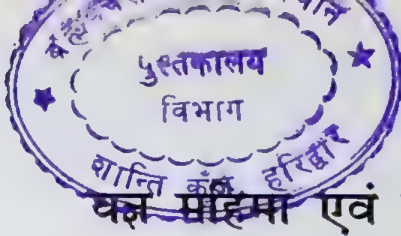 पुस्तकालय
विभाग
शान्ति कुंज हरिद्वार
यज्ञ महिमा एवं